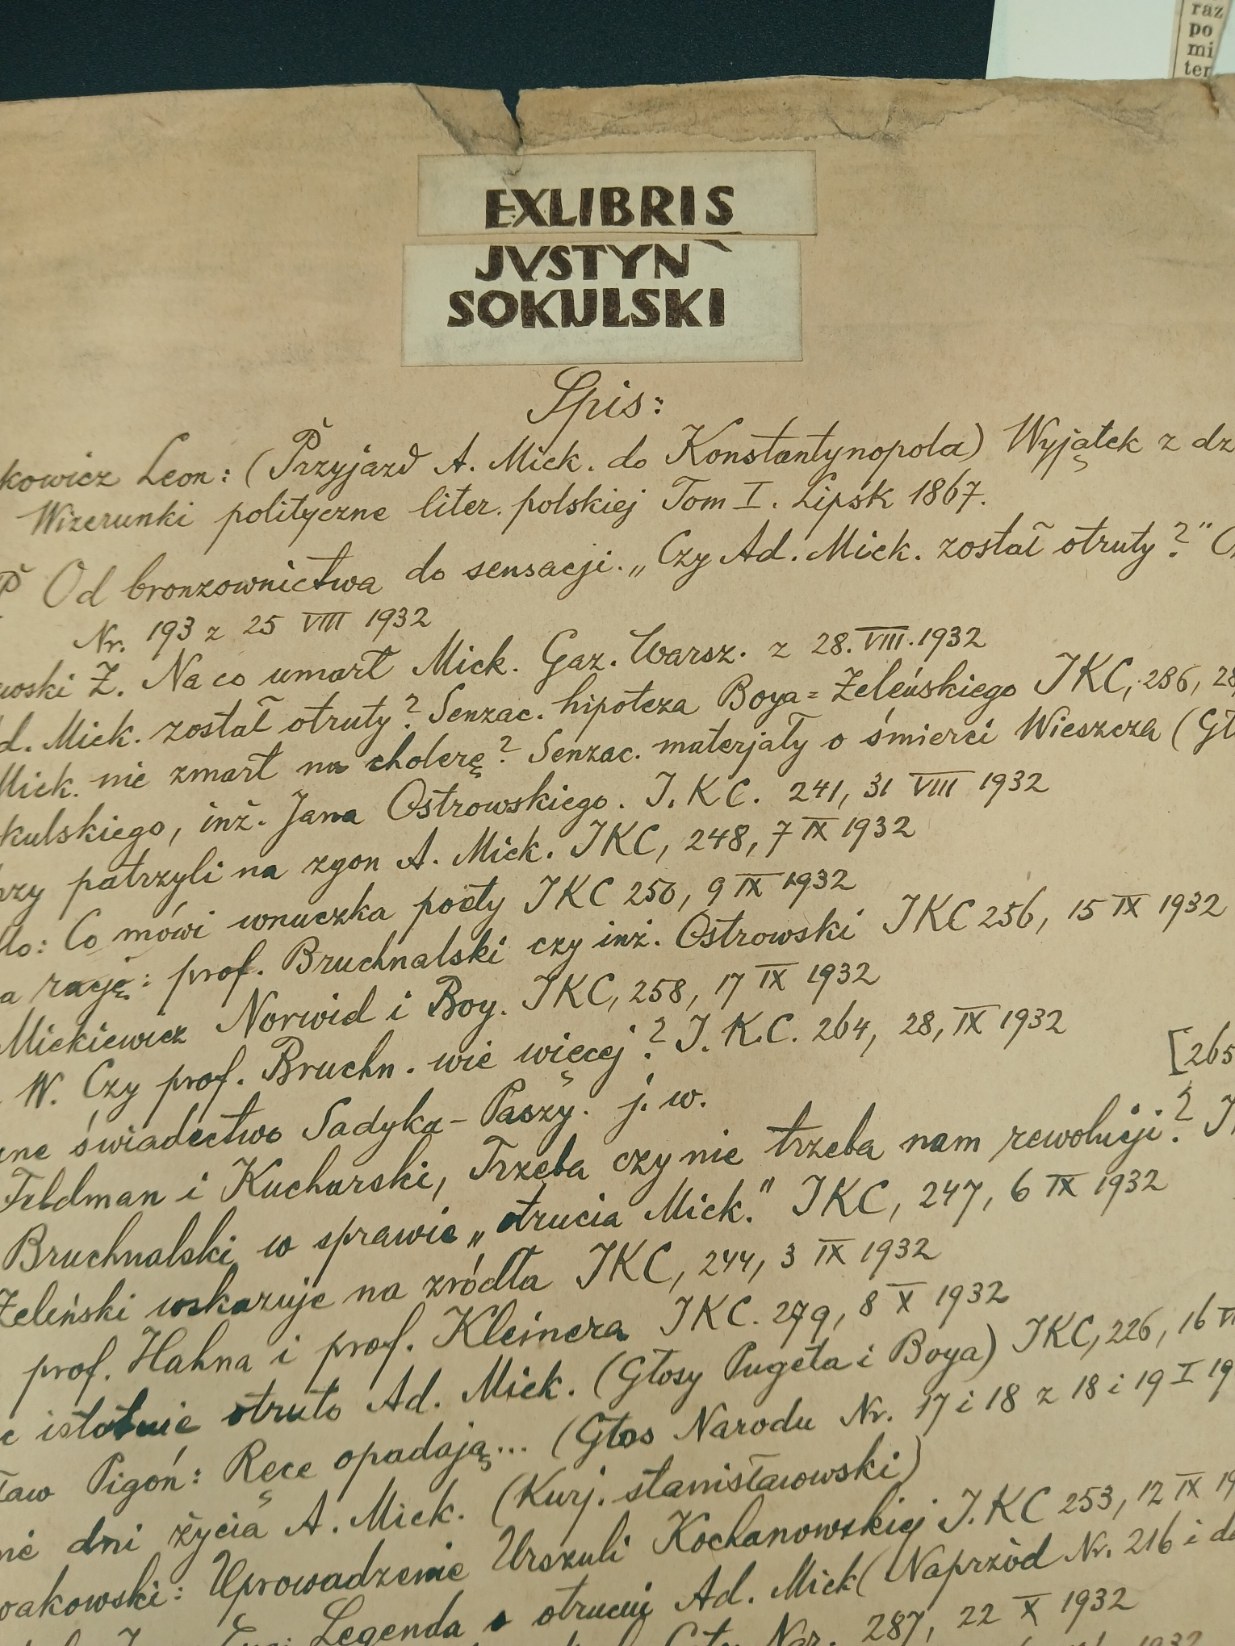 raz
po
mi
ter
EXLIBRIS
JVSTYN
SOKULSKI
Spis:
kowicz Leon: (Przyjazd A. Mick. do Konstantynopola) Wyjątek z dz
Wizerunki polityczne liter. polskiej Tom I. Lipsk 1867.
P Od bronzownictwa do sensacji. „Czy Ad. Mick. został otruty?"
Nr. 193 z 25 VIII 1932
wski Z. Na co umarł Mick. Gaz. Warsz. z 28.VIII.1932
d. Mick. został otruty? Senzac. hipoteza Boya=Żeleńskiego IKC, 286, 28
Mick. nie zmarł na cholerę? Senzac. materjały o śmierci Wieszcza (Gł
kulskiego, inż. Jana Ostrowskiego. I.KC. 241, 31 VIII 1932
rzy patrzyli na zgon A. Mick. IKC, 248, 7 IX 1932
llo: Co mówi wnuczka poety IKC 250, 9 IX 1932
a rację: prof. Bruchnalski czy inż. Ostrowski IKC 256, 15 IX 1932
Mickiewicz Norwid i Boy. IKC, 258, 17 IX 1932
W. Czy prof. Bruchn. wie więcej? I.K.C. 264, 28, IX 1932
[265
ne świadectwo Sadyka-Paszy. j.w.
Feldman i Kucharski, Trzeba czy nie trzeba nam rewolucji? I
Bruchnalski w sprawie „otrucia Mick." IKC, 247, 6 IX 1932
Żeleński wskazuje na zródła IKC, 244, 3 IX 1932
prof. Hahna i prof. Kleinera IKC. 279, 8 X 1932
c istotnie otruto Ad. Mick. (Głosy Pugeta i Boya) IKC, 226, 16 VI
ław Pigoń: Ręce opadają... (Głos Narodu Nr. 17 i 18 z 18 i 19 I 19
nie dni życia A. Mick. (Kurj. stanisławowski)
oakowski: Uprowadzenie Urszuli Kochanowskiej I.KC 253, 12 IX 19
Legenda o otruciu Ad. Mick (Naprzód Nr. 216 i d
Nar. 287, 22 X 1932
1932